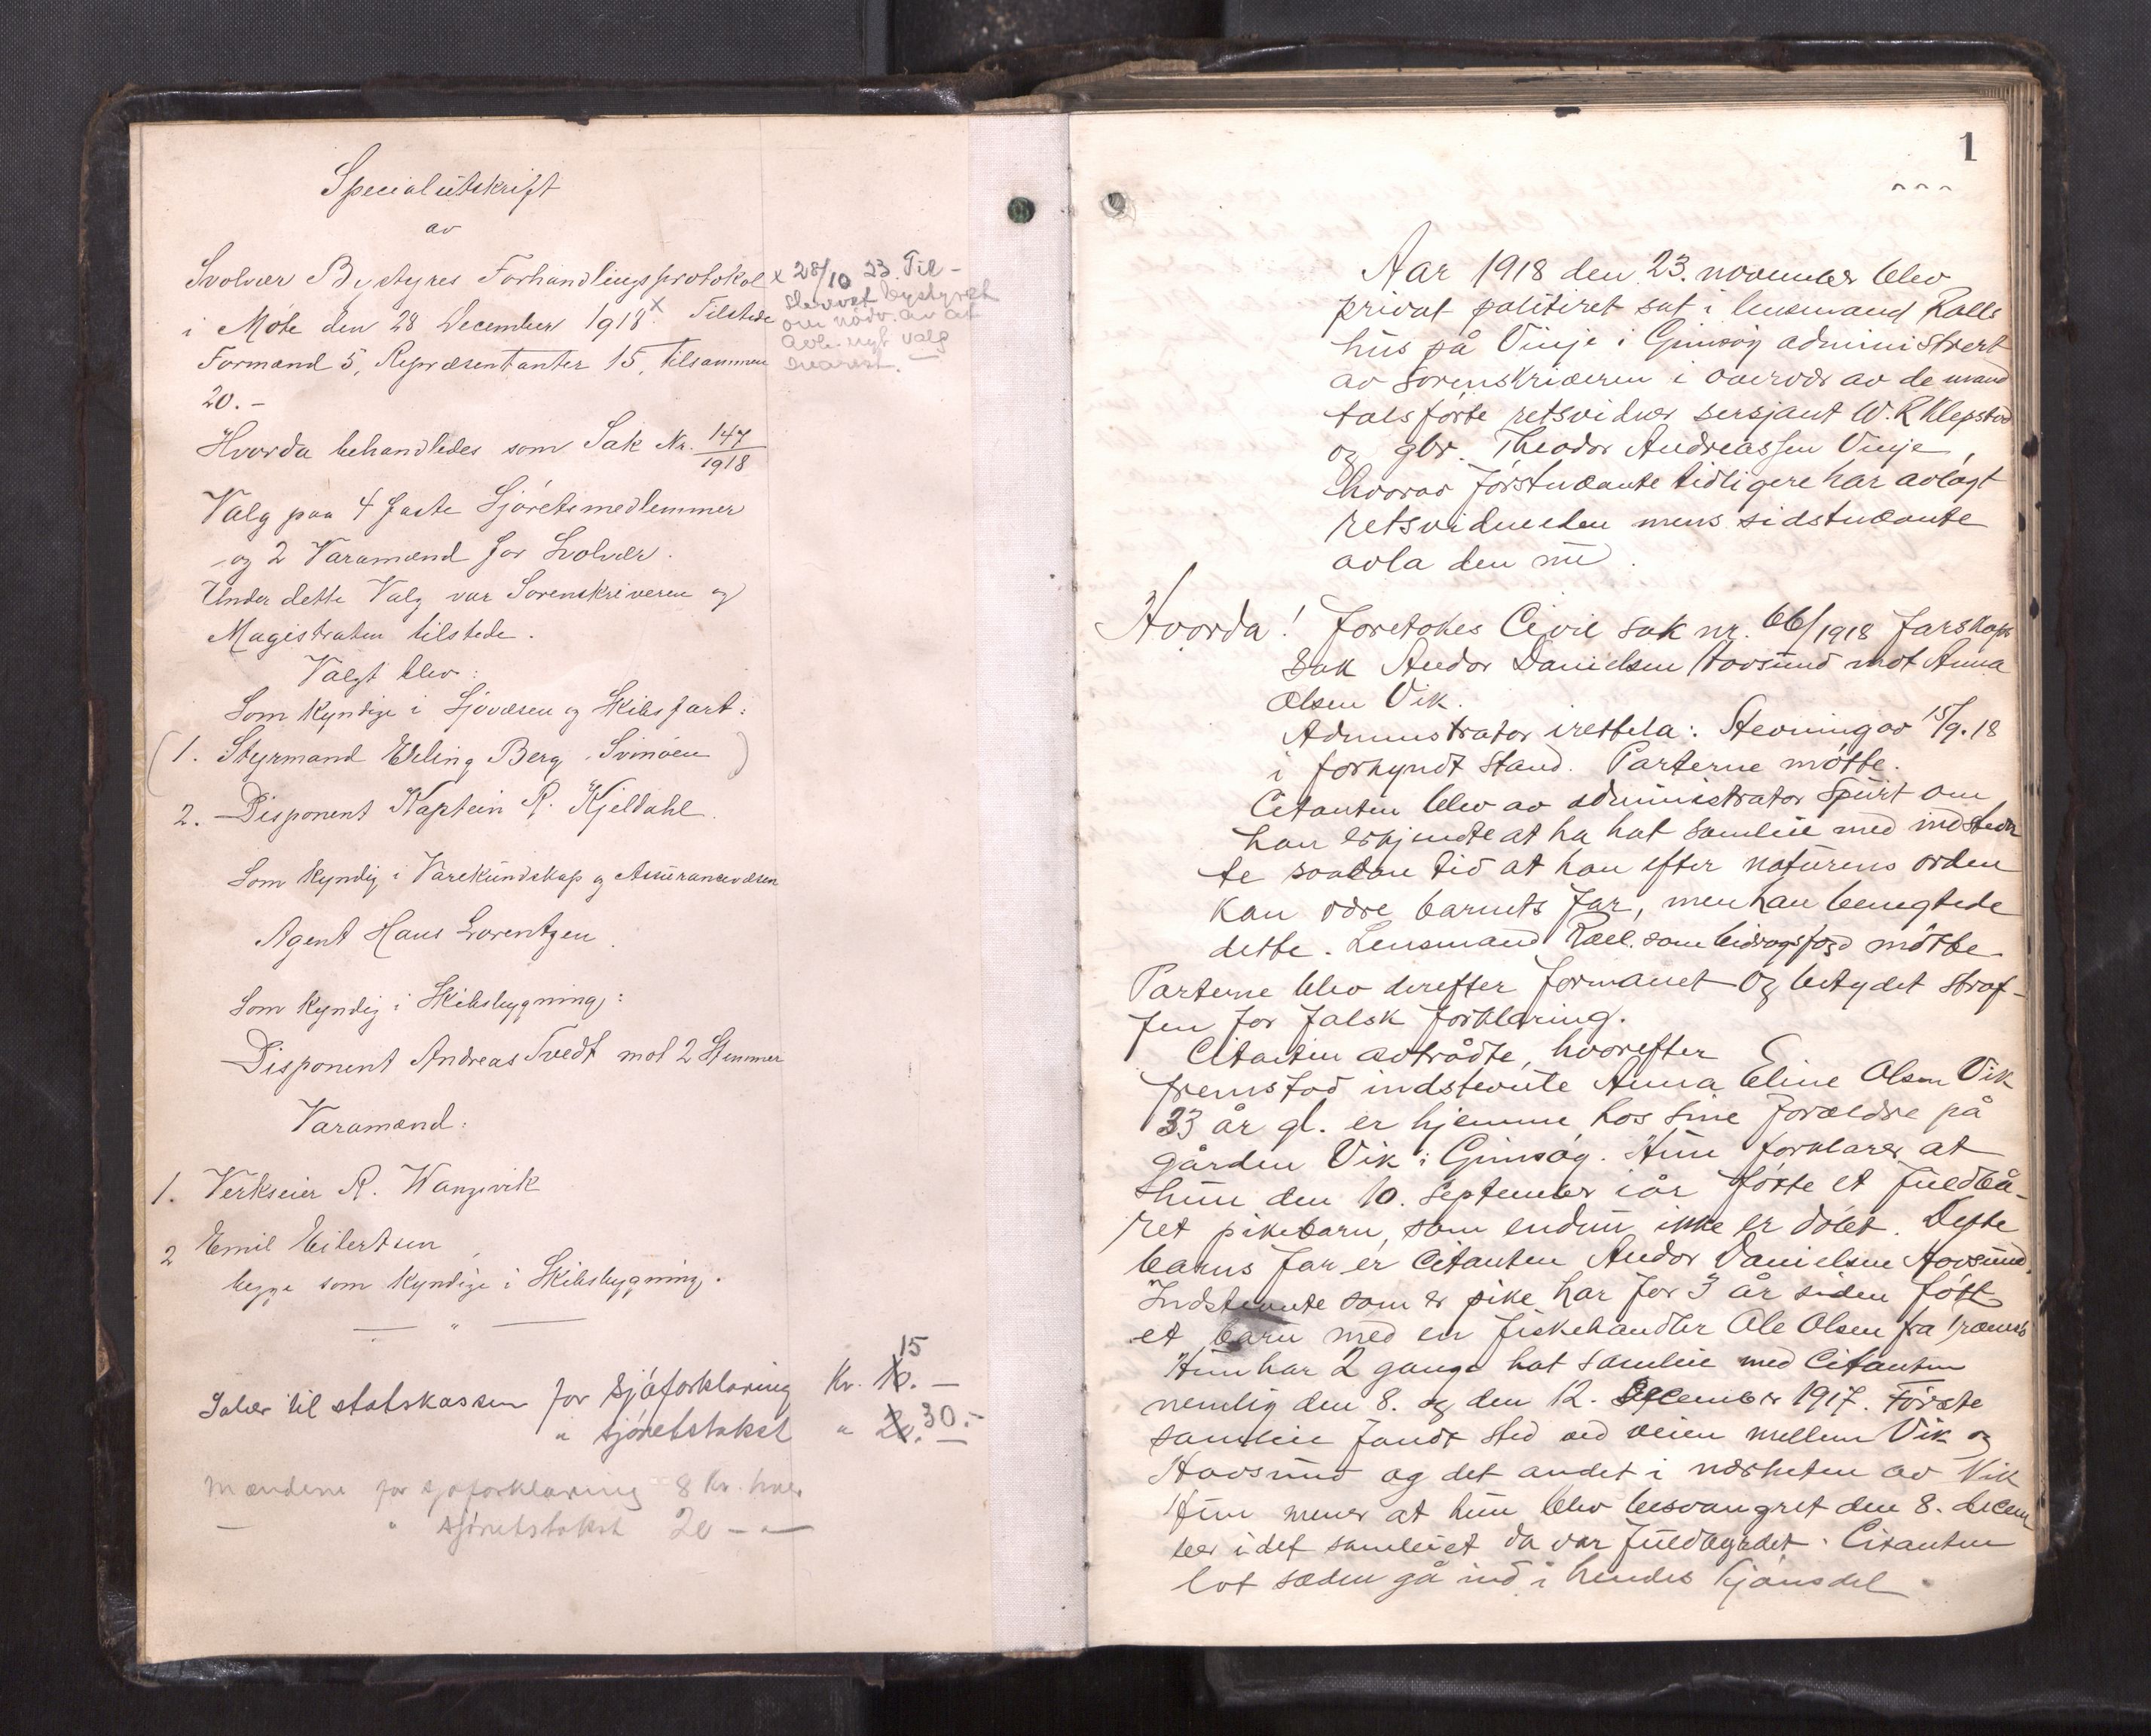 Specialutskrift
av
Svolvær Bystyres Forhandlingsprotokol
i Möte den 28 December 1918 x. Tilstede
Formænd 5, Repræsentanter 15, tilsammen
20.-
x 28/10 23. Til-
skrevet bystyret
om nödv. av at
avh. nyt valg
snarest. —
Hvorda behandledes som Sak Nr. 147/1918
Valg paa 4 faste Sjöretsmedlemmer
og 2 Varamænd for Svolvær.
Under dette Valg var Sorenskriveren og
Magistraten tilstede.
Valgt blev:
Som kyndige i Sjövæsen og Skibsfart:
(1. Styrmand Erling Berg, Svinöen)
2. Disponent Kaptein R. Kjeldahl.
Som kyndig i Varekundskap og Assurancevæsen
Agent Hans Lorentzen.
Som kyndig i Skibsbygning:
Disponent Andreas Tvedt mot 2 Stemmer
Varamænd:
1. Verkseier R. Wangsvik
2 Emil Eilertsen
begge som kyndige i Skibsbygning.
— " —
Salær til statskassen for sjöforklaring Kr. 15.—
" sjöretstakst " 30.—
Mændene for sjöforklaring 8 Kr. hver
— " sjöretstakst 20 — " —
1
Aar 1918 den 23. november blev
privat politiret sat i lensmand Rolls
hus på Vinje i Gimsöy administrert
av sorenskriveren i overvær av de mand
talsförte retsvidner sersjant W. R Klepstad
og gbr. Theodor Andreassen Vinje,
hvorav förstnævnte tidligere har avlagt
retsvidneeden mens sidstnævnte
avla den nu.
Hvorda! Foretokes Civil sak nr. 66/1918 farskaps
sak Andor Danielsen Hovsund mot Anna
Olsen Vik.
Administrator irettela: Stevning av 15/9.18
i forkyndt stand. Parterne mötte.
Citanten blev av administrator spurt om
han erkjendte at ha hat samleie med indstevn
te saadan tid at han efter naturens orden
kan være barnets far, men han benegtede
dette. Lensmand Roll som bidragsfogd mötte
Parterne blev derefter formanet og betydet straf-
fen for falsk forklaring.
Citanten avtrådte, hvorefter
fremstod indstevnte Anna Eline Olsen Vik
33 år gl. er hjemme hos sine forældre på
gården Vik i Gimsöy. Hun forklarer at
hun den 10. September iår födte et fuldbå-
ret pikebarn, som endnu ikke er döbt. Dette
barns far er Citanten Andor Danielsen Hovsund.
Indstevnte som er pike har for 3 år siden fött
et barn med en fiskehandler Ole Olsen fra
Hun har 2 gange hat samleie med Citanten
nemlig den 8. og den 12. December 1917. Förste
samleie fandt sted ved veien mellem Vik og
Hovsund og det andet i nærheten av Vik
Hun mener at hun blev besvangret den 8. decem
ber idet samleiet da var fuldbyrdet. Citanten
lot sæden gå ind i hendes kjönsdel